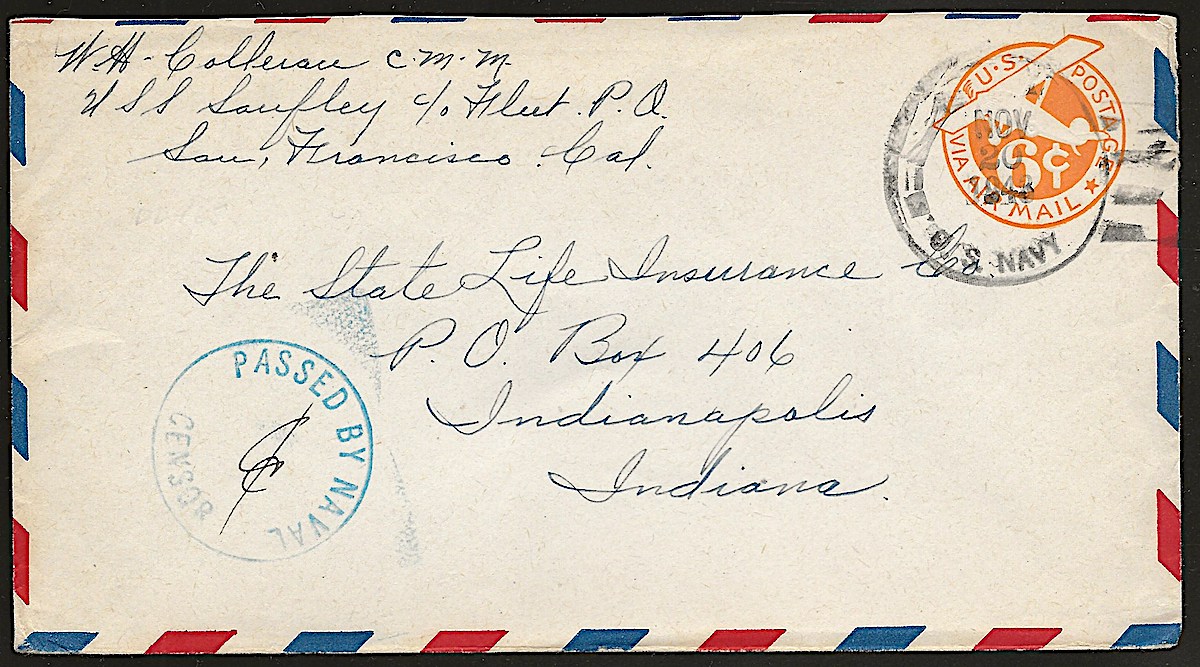 W.H. Colleran C.M.M.
USS Saufley c/o Fleet P.O.
San, Francisco Cal.
U.S. POSTAGE
VIA AIR MAIL
6¢
NOV
20
1943
U.S. NAVY
The State Life Insurance Co
P.O. Box 406
Indianapolis
Indiana.
PASSED BY NAVAL
CENSOR